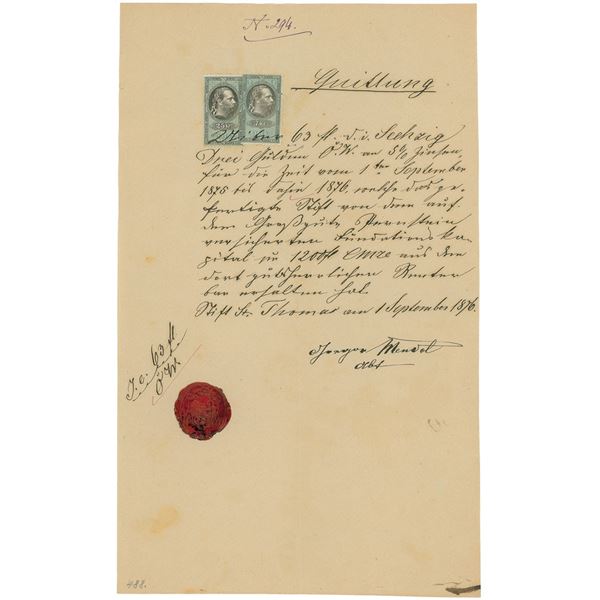 N. 294.
Quittung
Über 63 fl. d. i. Sechzig
Drei Gulden Ö.W. an 5% Zinsen
für die Zeit vom 1ten September
1875 bis dahin 1876, welche das ge-
fertigte Stift von dem auf
dem Großgute Pernstein
versicherten Fundationska-
pital zu 1200 fl Cmze aus den
dort gutsherrlichen Renten
bar erhalten hat.
Stift St. Thomas am 1 September 1876.
Gregor Mendel
Abt
63 fl.
Ö.W.
488.